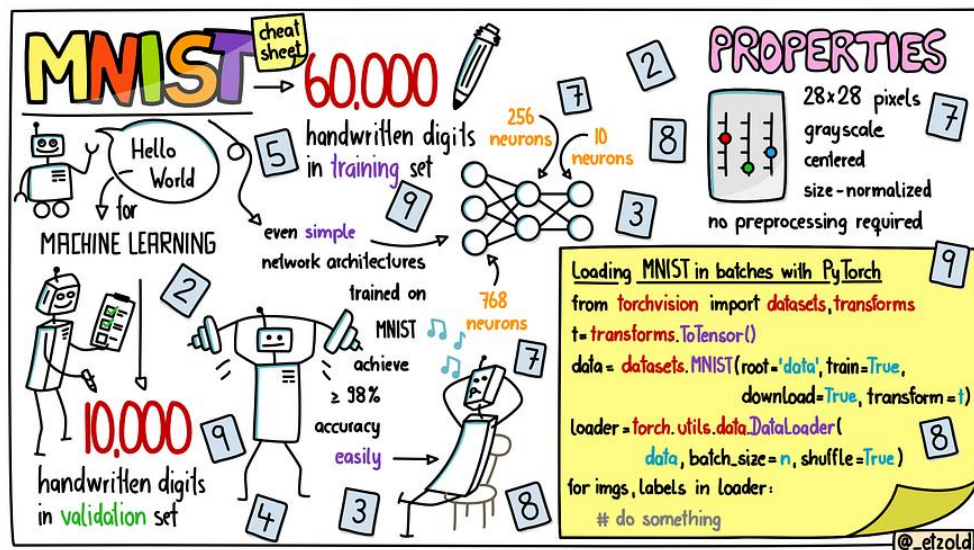 MNIST
cheat
sheet
60,000
handwritten digits
in training set
Hello
World
for
MACHINE LEARNING
10,000
handwritten digits
in validation set
even simple
network architectures
trained on
MNIST
achieve
≥ 98%
accuracy
easily
256
neurons
10
neurons
768
neurons
5
9
7
2
8
3
2
9
4
3
7
8
PROPERTIES
28x28 pixels
grayscale
centered
size-normalized
no preprocessing required
7
9
8
Loading MNIST in batches with PyTorch
from torchvision import datasets, transforms
t = transforms.ToTensor()
data = datasets.MNIST(root='data', train=True,
download=True, transform=t)
loader = torch.utils.data.DataLoader(
data, batch_size=n, shuffle=True)
for imgs, labels in loader:
# do something
@_etzold